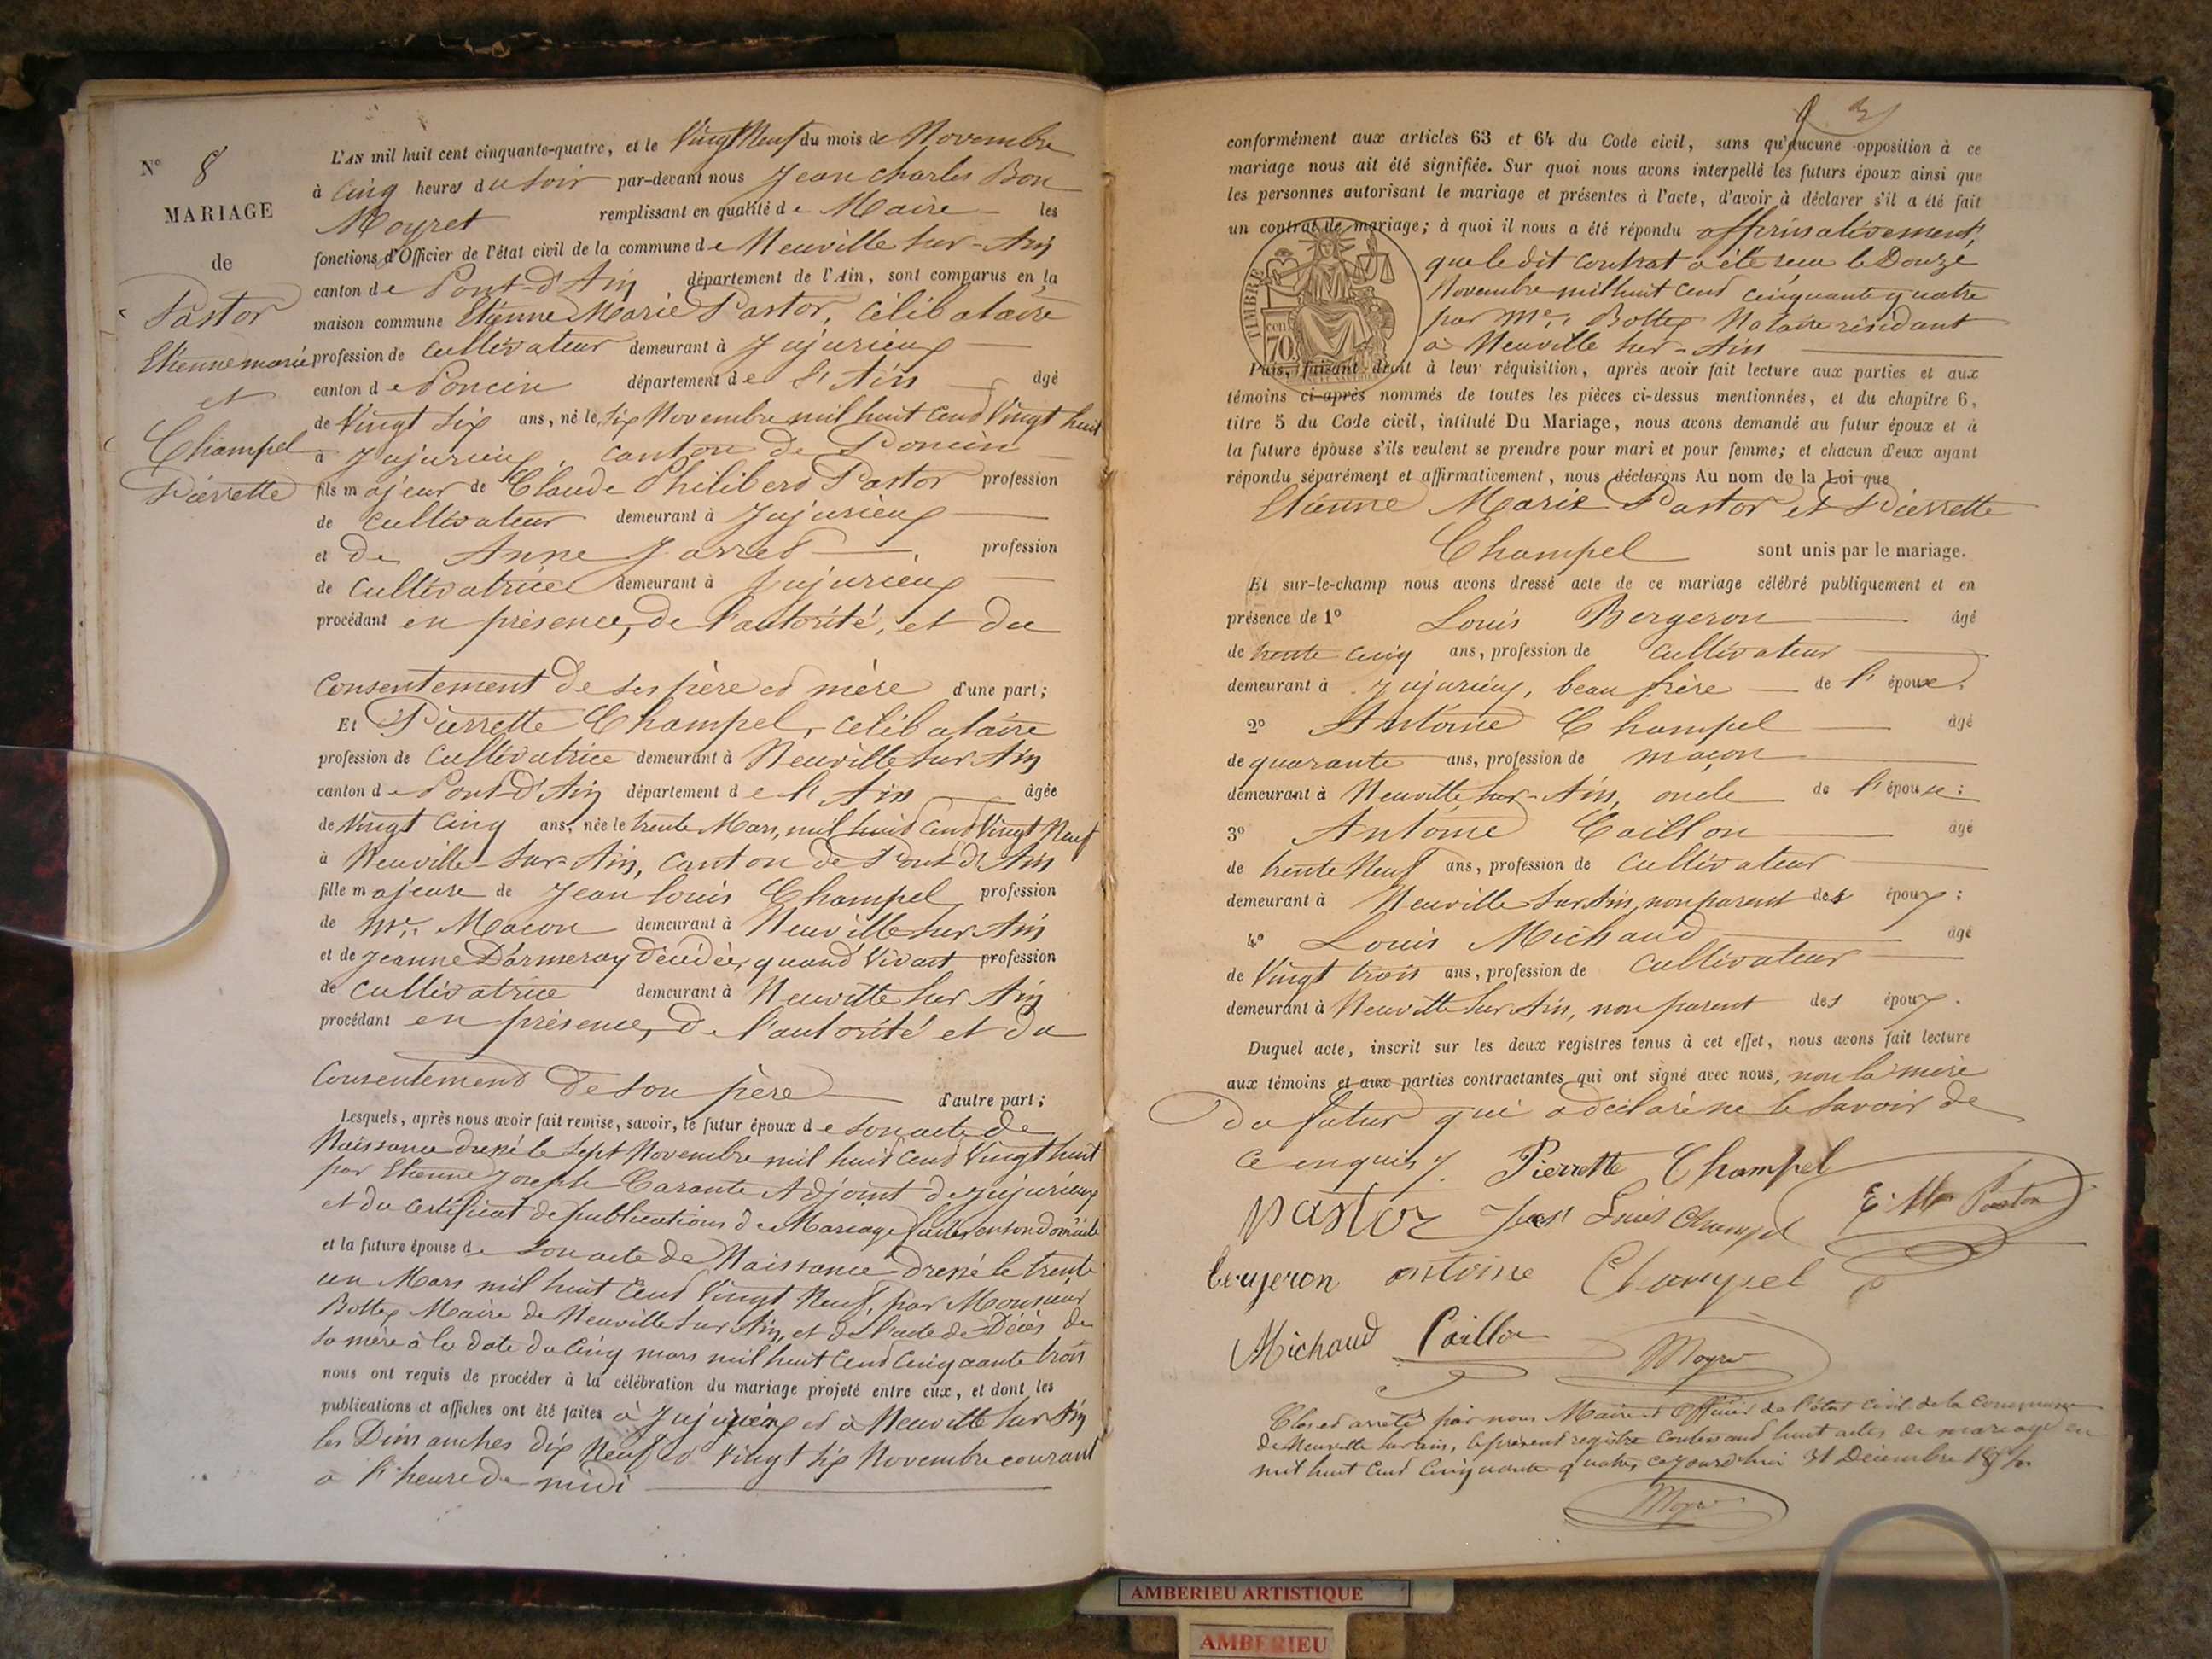 N° 8
MARIAGE
de
Pastor
Etienne marie
et
Champel
Pierrette
L'AN mil huit cent cinquante-quatre, et le Vingt Neuf du mois de Novembre
à Cinq heures du Soir par-devant nous Jean Charles Bon
Moyret remplissant en qualité de Maire les
fonctions d'Officier de l'état civil de la commune de Neuville sur-Ain
canton de Pont-d'Ain département de l'Ain, sont comparus en la
maison commune Etienne Marie Pastor, Célibataire
profession de Cultivateur demeurant à Jujurieux
canton de Poncin département de l'Ain âgé
de Vingt Six ans, né le Six Novembre mil huit Cend Vingt huit
à Jujurieux, canton de Poncin
fils majeur de Claude Philiberd Pastor profession
de Cultivateur demeurant à Jujurieux
et de Anne Jarred profession
de Cultivatrice demeurant à Jujurieux
procédant en présence, De l'autorité, et du
Consentement de ses père et mère d'une part;
Et Pierrette Champel, Célibataire
profession de Cultivatrice demeurant à Neuville sur Ain
canton de Pont-D'Ain département de l'Ain âgée
de Vingt Cinq ans, née le trente Mars, mil huit Cend Vingt Neuf
à Neuville-Sur-Ain, Canton de Pont d'Ain
fille majeure de Jean Louis Champel profession
de Me. Macon demeurant à Neuville sur Ain
et de Jeanne Darmeray Décédée, quand Vivant profession
de Cultivatrice demeurant à Neuville sur Ain
procédant en présence, De l'autorité et du
Consentement de son père d'autre part;
Lesquels, après nous avoir fait remise, savoir, le futur époux de son acte de
Naissance dressé le Sept Novembre mil huit Cend Vingt huit
par Etienne Joseph Carante Adjoint de Jujurieux
et du Certificat de publications de Mariage faites en son Domicile
et la future épouse de Son acte de Naissance dressé le trente
un Mars mil huit Cend Vingt Neuf, par Monsieur
Bottex Maire de Neuville sur Ain, et de l'acte de Décès de
sa mère à la date du Cinq mars mil huit Cend Cinquante trois
nous ont requis de procéder à la célébration du mariage projeté entre eux, et dont les
publications et affiches ont été faites à Jujurieux et à Neuville sur Ain
les Dimanches dix Neuf et Vingt Six Novembre courant
à l'heure de midi
conformément aux articles 63 et 64 du Code civil, sans qu'aucune opposition à ce
mariage nous ait été signifiée. Sur quoi nous avons interpellé les futurs époux ainsi que
les personnes autorisant le mariage et présentes à l'acte, d'avoir à déclarer s'il a été fait
un contrat de mariage; à quoi il nous a été répondu affirmativement,
que le dit Contrat a été reçu le Douze
Novembre mil huit Cend Cinquante quatre
par Me. Bottex Notaire résidant
à Neuville sur-Ain
TIMBRE
cent
70
Puis, faisant droit à leur réquisition, après avoir fait lecture aux parties et aux
témoins ci-après nommés de toutes les pièces ci-dessus mentionnées, et du chapitre 6,
titre 5 du Code civil, intitulé Du Mariage, nous avons demandé au futur époux et à
la future épouse s'ils veulent se prendre pour mari et pour femme; et chacun d'eux ayant
répondu séparément et affirmativement, nous déclarons Au nom de la Loi que
Etienne Marie Pastor et Pierrette
Champel sont unis par le mariage.
Et sur-le-champ nous avons dressé acte de ce mariage célébré publiquement et en
présence de 1° Louis Bergeron âgé
de trente Cinq ans, profession de Cultivateur
demeurant à Jujurieux, beau frère de l'époux.
2° Antoine Champel âgé
de quarante ans, profession de maçon
demeurant à Neuville sur-Ain, oncle de l'épouse:
3° Antoine Caillon âgé
de trente Neuf ans, profession de Cultivateur
demeurant à Neuville sur Ain, non parent des époux:
4° Louis Michaud âgé
de Vingt trois ans, profession de Cultivateur
demeurant à Neuville sur Ain, non parent des époux.
Duquel acte, inscrit sur les deux registres tenus à cet effet, nous avons fait lecture
aux témoins et aux parties contractantes qui ont signé avec nous, non la mère
du futur qui a déclaré ne le Savoir de
Ce enquis. Pierrette Champel
Pastor Jean Louis Champel E. M. Pastor
bergeron antoine Champel
Michaud Caillon Moyret
Clos et arrêté par nous Maire et Officier de l'état Civil de la Commune
de Neuville sur ain, le présent registre Contenant huit actes de mariage en
mil huit Cend Cinquante quatre, Cejourd'hui 31 Décembre 1854.
Moyret
AMBERIEU ARTISTIQUE
AMBERIEU